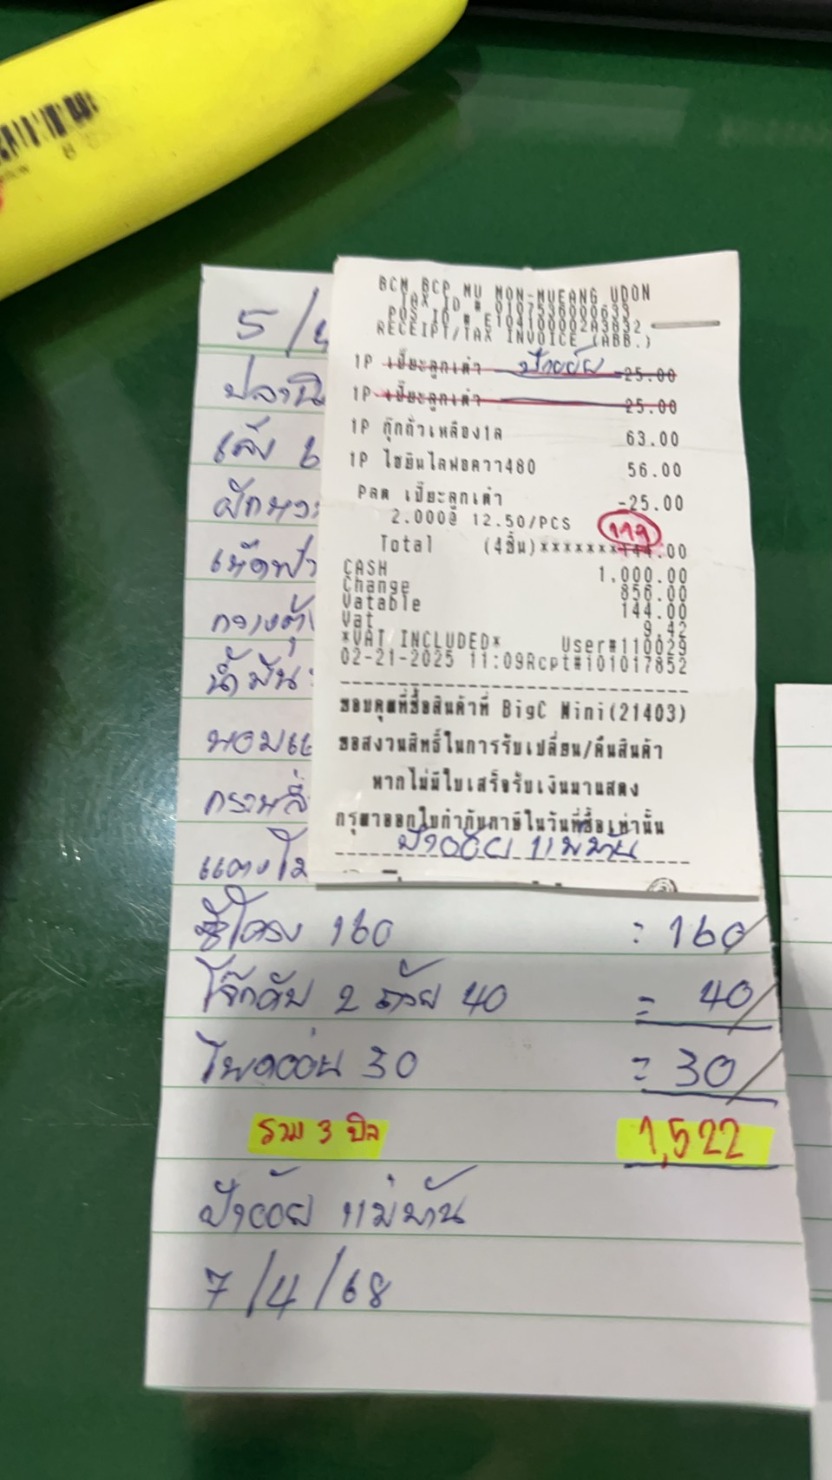 BCM BCP MU MON-MUEANG UDON
TAX ID # 0107536000633
POS ID # E104180002A3832
RECEIPT/TAX INVOICE (ABB.)
1P เปี๊ยะลูกเต๋า ป้าอ้อย 25.00
1P เปี๊ยะลูกเต๋า 25.00
1P กุ๊กถั่วเหลือง1ล 63.00
1P ไฮยีนไลฟอควา480 56.00
Pลด เปี๊ยะลูกเต๋า -25.00
2.000@ 12.50/PCS
119
Total (4ชิ้น)*******144.00
CASH 1,000.00
Change 856.00
Vatable 144.00
Vat 9.42
*VAT INCLUDED* User#110029
02-21-2025 11:09Rcpt#101017852
ขอบคุณที่ซื้อสินค้าที่ BigC Mini(21403)
ขอสงวนสิทธิ์ในการรับเปลี่ยน/คืนสินค้า
หากไม่มีใบเสร็จรับเงินมาแสดง
กรุณาออกใบกำกับภาษีในวันที่ซื้อเท่านั้น
ป้าอ้อย แม่บ้าน
5/4
น้ำมัน
แตงโม
ซี่โครง 160 = 160/
โจ๊กคัพ 2 ถ้วย 40 = 40/
ไพดอ่อน 30 = 30/
รวม 3 บิล 1,522
ป้าอ้อย แม่บ้าน
7/4/68